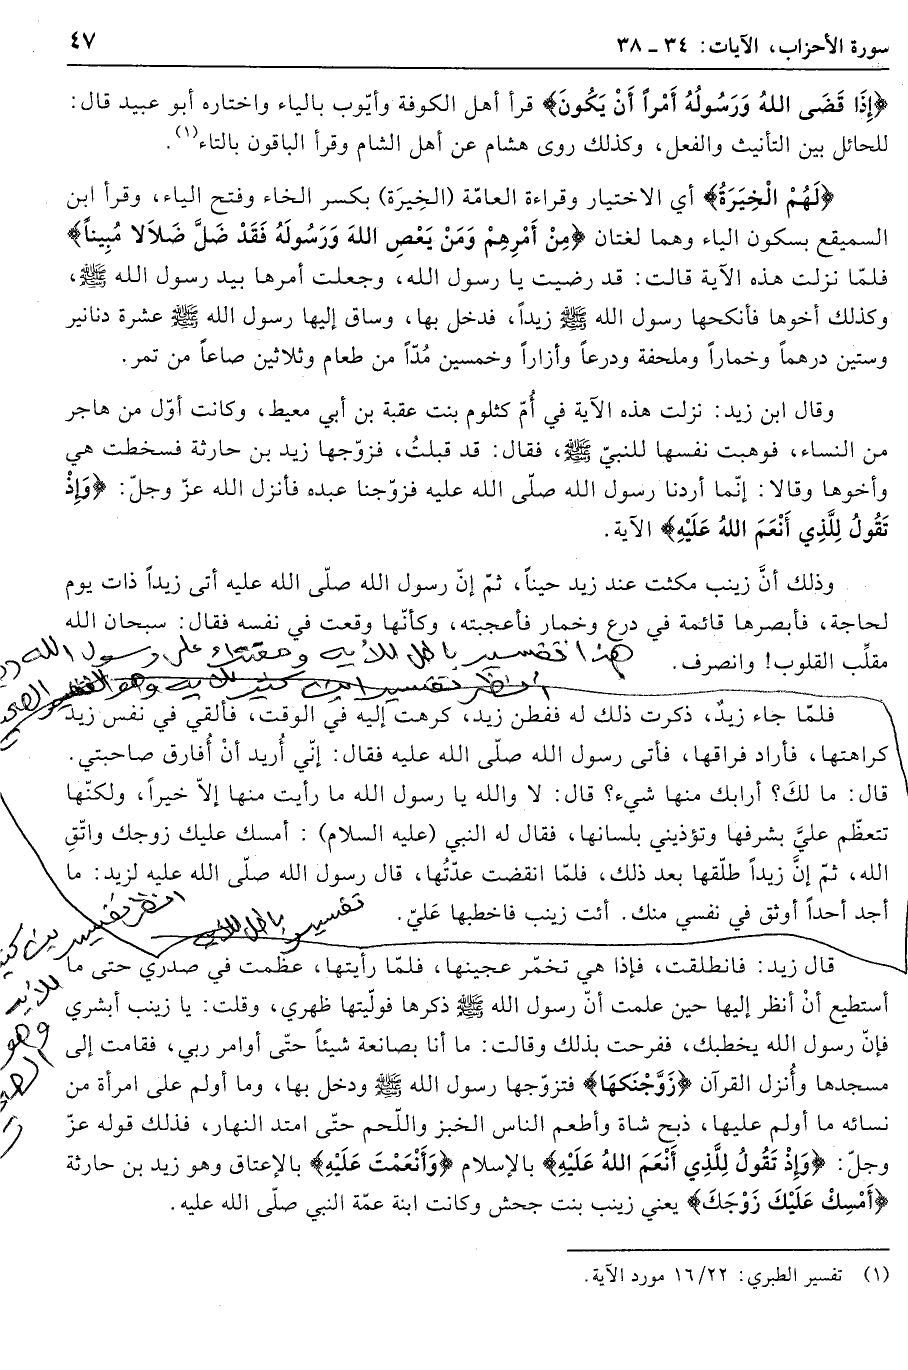 سورة الأحزاب، الآيات: ٣٤ ـ ٣٨
٤٧
﴿إِذَا قَضَى اللهُ وَرَسُولُهُ أَمْراً أَنْ يَكُونَ﴾ قرأ أهل الكوفة وأيّوب بالياء واختاره أبو عبيد قال:
للحائل بين التأنيث والفعل، وكذلك روى هشام عن أهل الشام وقرأ الباقون بالتاء(١).
﴿لَهُمْ الْخِيَرَةُ﴾ أي الاختيار وقراءة العامّة (الخِيَرَة) بكسر الخاء وفتح الياء، وقرأ ابن
السميقع بسكون الياء وهما لغتان ﴿مِنْ أَمْرِهِمْ وَمَنْ يَعْصِ اللهَ وَرَسُولَهُ فَقَدْ ضَلَّ ضَلَالا مُبِيناً﴾
فلمّا نزلت هذه الآية قالت: قد رضيت يا رسول الله، وجعلت أمرها بيد رسول الله ﷺ،
وكذلك أخوها فأنكحها رسول الله ﷺ زيداً، فدخل بها، وساق إليها رسول الله ﷺ عشرة دنانير
وستين درهماً وخماراً وملحفة ودرعاً وأزاراً وخمسين مُدّاً من طعام وثلاثين صاعاً من تمر.
وقال ابن زيد: نزلت هذه الآية في أُمّ كثلوم بنت عقبة بن أبي معيط، وكانت أوّل من هاجر
من النساء، فوهبت نفسها للنبيّ ﷺ، فقال: قد قبلتُ، فزوّجها زيد بن حارثة فسخطت هي
وأخوها وقالا: إنّما أردنا رسول الله صلّى الله عليه فزوّجنا عبده فأنزل الله عزّ وجلّ: ﴿وَإِذْ
تَقُولُ لِلَّذِي أَنْعَمَ اللهُ عَلَيْهِ﴾ الآية.
وذلك أنَّ زينب مكثت عند زيد حيناً، ثمّ إنّ رسول الله صلّى الله عليه أتى زيداً ذات يوم
لحاجة، فأبصرها قائمة في درع وخمار فأعجبته، وكأنّها وقعت في نفسه فقال: سبحان الله
مقلّب القلوب! وانصرف.
هذا تفسير باطل للآية على رسول الله
أنظر تفسير ابن كثير للآية وهو التفسير
فلمّا جاء زيدٌ، ذكرت ذلك له ففطن زيد، كرهت إليه في الوقت، فألقي في نفس زيد
كراهتها، فأراد فراقها، فأتى رسول الله صلّى الله عليه فقال: إنّي أُريد أنْ أُفارق صاحبتي.
قال: ما لكَ؟ أرابك منها شيء؟ قال: لا والله يا رسول الله ما رأيت منها إلاّ خيراً، ولكنّها
تتعظّم عليَّ بشرفها وتؤذيني بلسانها، فقال له النبي (عليه السلام) : أمسك عليك زوجك واتّقِ
الله، ثمّ إنَّ زيداً طلّقها بعد ذلك، فلمّا انقضت عدّتُها، قال رسول الله صلّى الله عليه لزيد: ما
أجد أحداً أوثق في نفسي منك. أئت زينب فاخطبها عَليّ.
تفسير باطل للآية
انظر تفسير
بن كثير
للآية
وهو
قال زيد: فانطلقت، فإذا هي تخمّر عجينها، فلمّا رأيتها، عظمت في صدري حتى ما
أستطيع أنْ أنظر إليها حين علمت أنّ رسول الله ﷺ ذكرها فولّيتها ظهري، وقلت: يا زينب أبشري
فإنّ رسول الله يخطبك، ففرحت بذلك وقالت: ما أنا بصانعة شيئاً حتّى أوامر ربي، فقامت إلى
مسجدها وأُنزل القرآن ﴿زَوَّجْنَكهَا﴾ فتزوّجها رسول الله ﷺ ودخل بها، وما أولم على امرأة من
نسائه ما أولم عليها، ذبح شاة وأطعم الناس الخبز واللّحم حتّى امتد النهار، فذلك قوله عزّ
وجلّ: ﴿وَإِذْ تَقُولُ لِلَّذِي أَنْعَمَ اللهُ عَلَيْهِ﴾ بالإسلام ﴿وَأَنْعَمْتَ عَلَيْهِ﴾ بالإعتاق وهو زيد بن حارثة
﴿أَمْسِكْ عَلَيْكَ زَوْجَكَ﴾ يعني زينب بنت جحش وكانت ابنة عمّة النبي صلّى الله عليه.
(١) تفسير الطبري: ١٦/٢٢ مورد الآية.